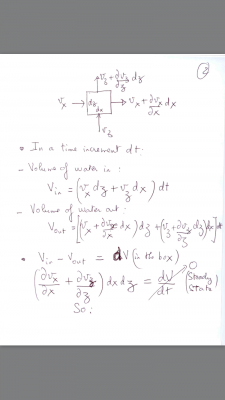 ②
v_z + ∂v_z/∂z dz
v_x → dz dx → v_x + ∂v_x/∂x dx
v_z
• In a time increment dt:
- Volume of water in:
V_in = (v_x dz + v_z dx) dt
- Volume of water out:
V_out = [(v_x + ∂v_x/∂x dx) dz + (v_z + ∂v_z/∂z dz) dx] dt
• V_in - V_out = dV (in the box)
(∂v_x/∂x + ∂v_z/∂z) dx dz = dV/dt → 0 (Steady State)
So: